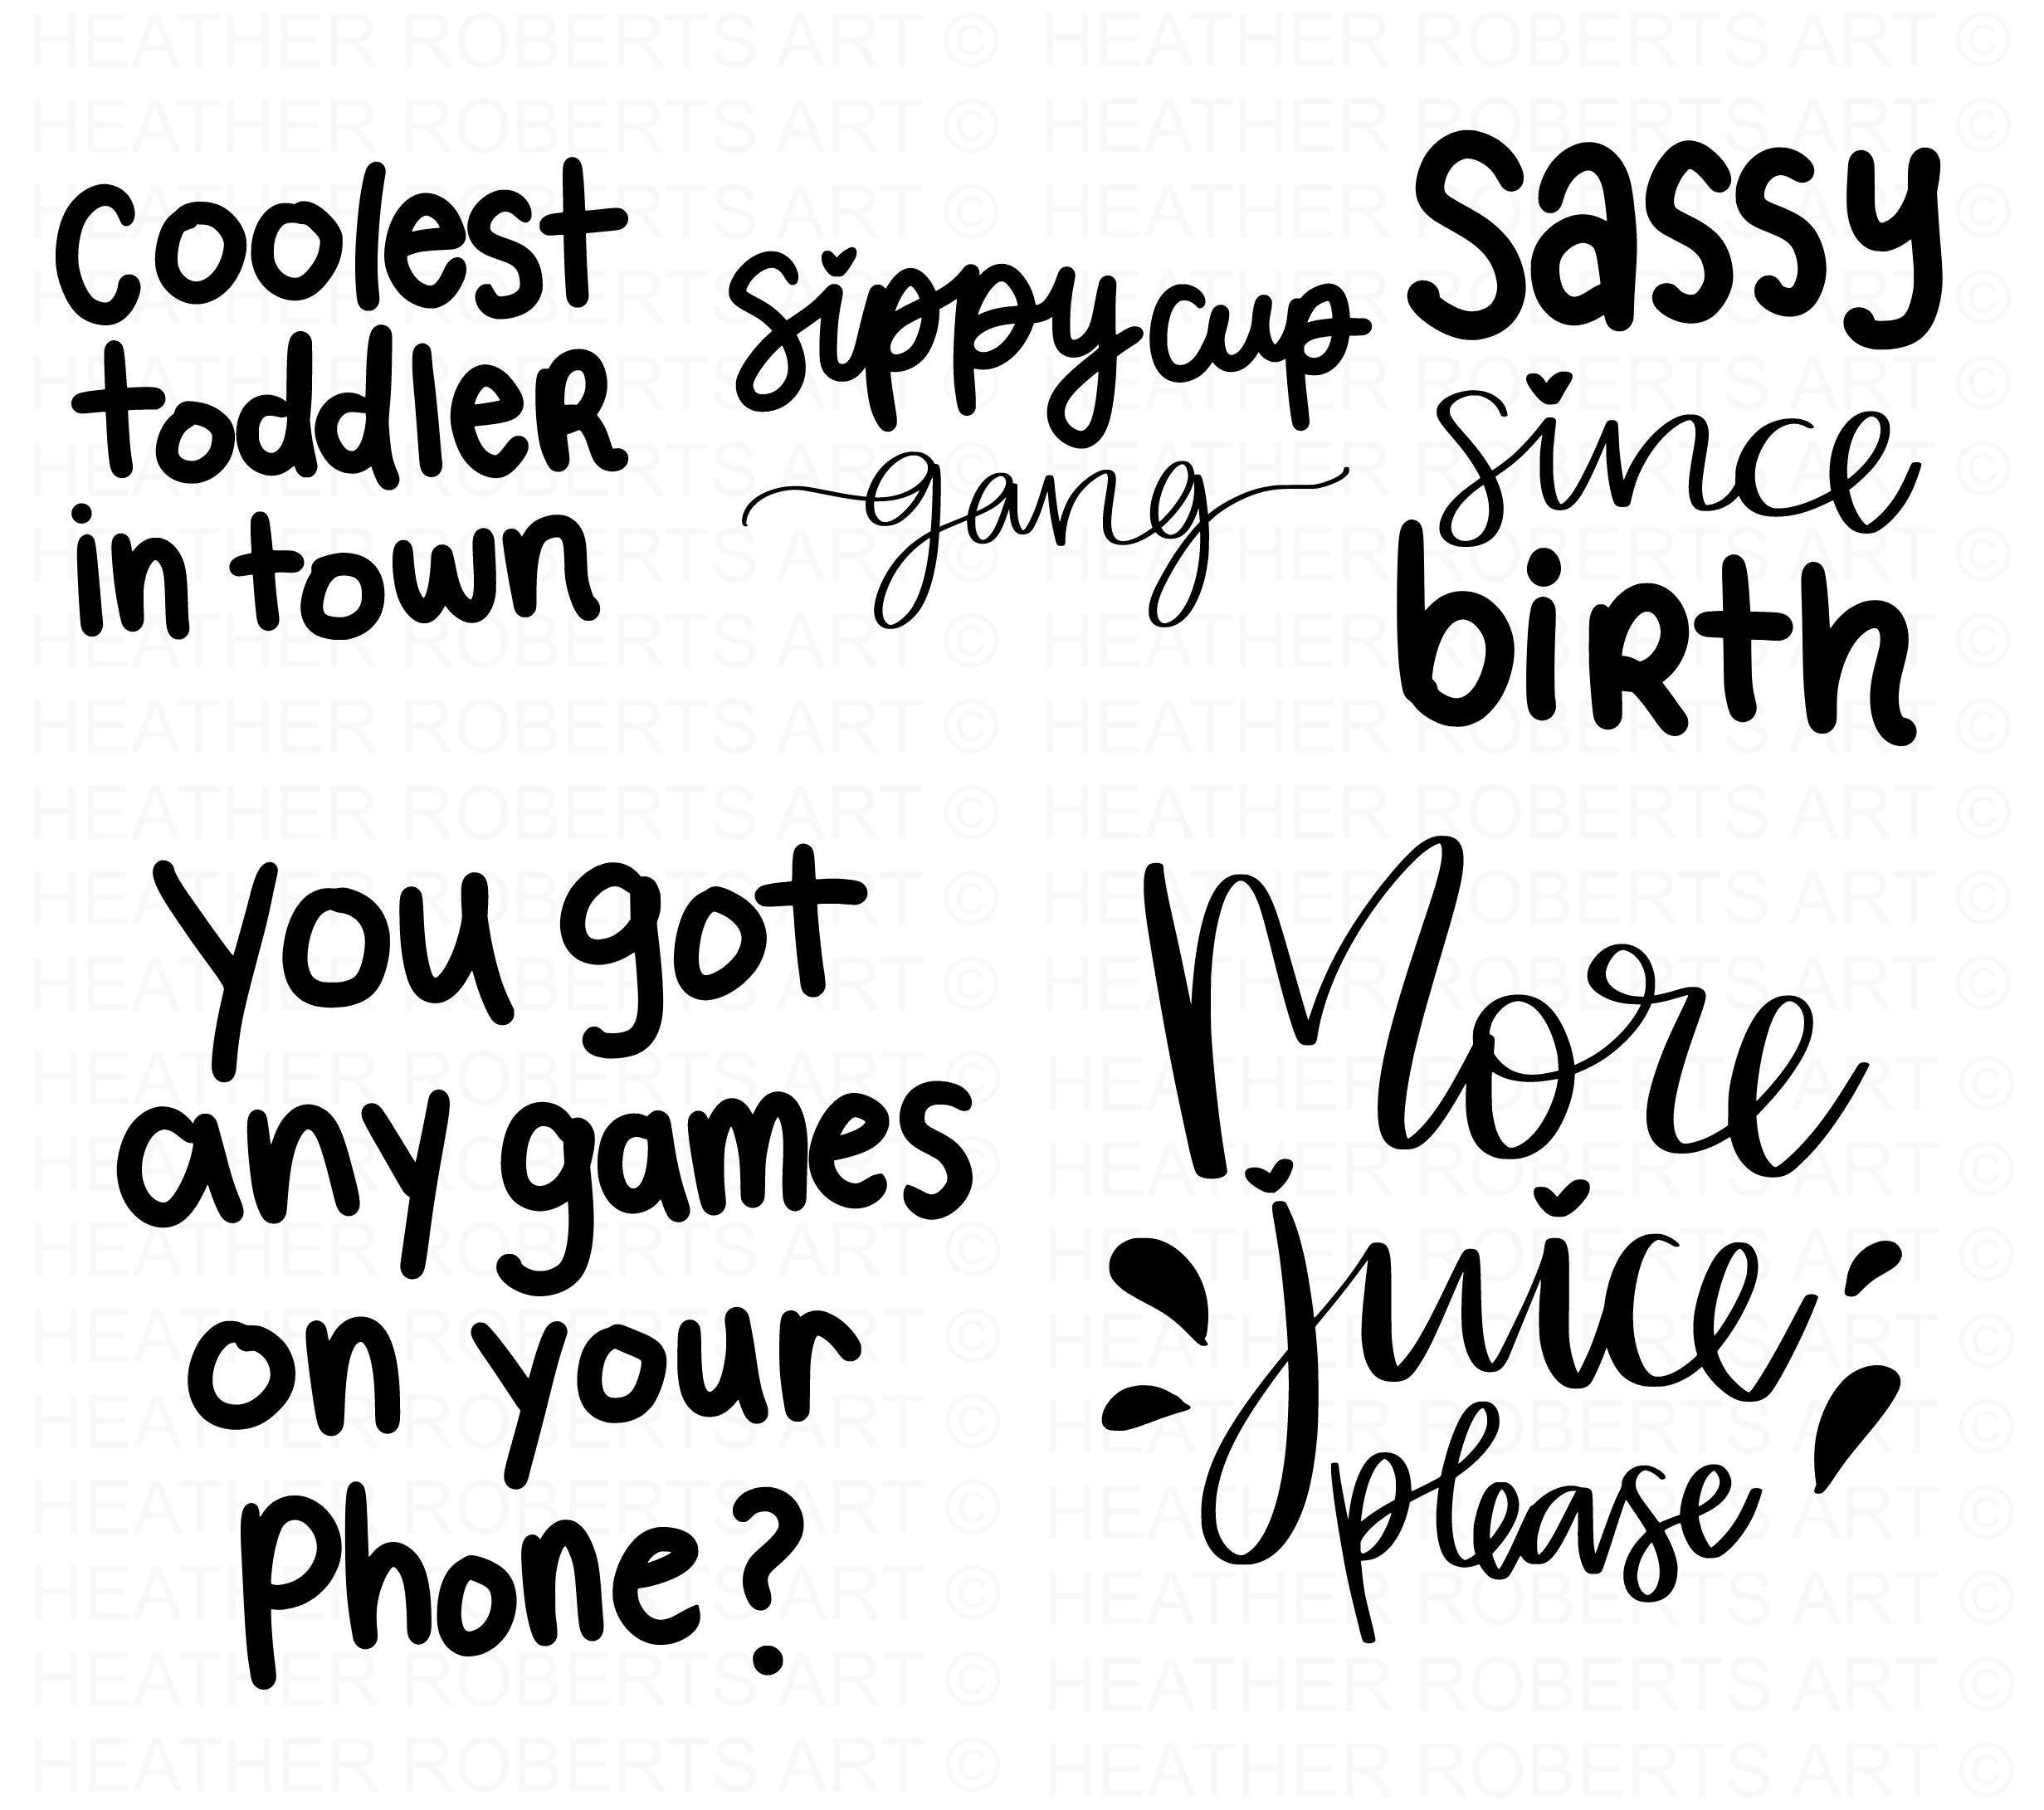 coolest
toddleR
in town
sippy cup
gang
sassy
since
biRth
you got
any games
on your
phone?
More
juice
please
HEATHER ROBERTS ART ©